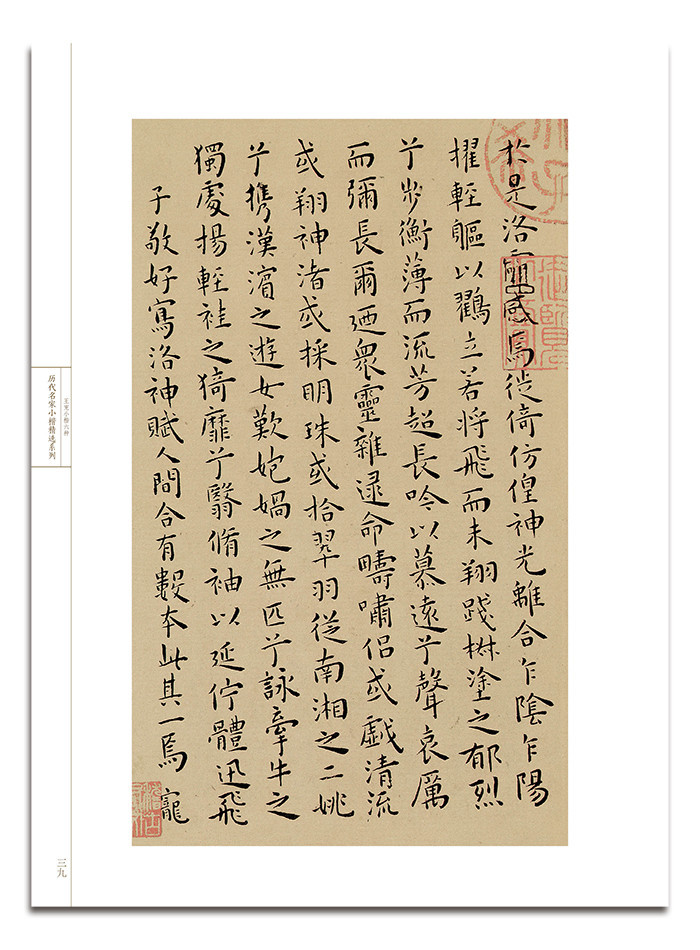 於是洛靈感焉徙倚仿偟神光離合乍陰乍陽
擢輕軀以鸛立若將飛而未翔踐椒塗之郁烈
兮步衡薄而流芳超長吟以慕遠兮聲哀厲
而彌長爾迺衆靈雜遝命疇嘯侣或戯清流
或翔神渚或採明珠或拾翠羽從南湘之二姚
兮携漢濱之遊女歎㚿媧之無匹兮詠牽牛之
獨處揚輕袿之猗靡兮翳脩袖以延佇體迅飛
子敬好寫洛神賦人間合有數本此其一焉 寵
王宠小楷六种
历代名家小楷精选系列
三九